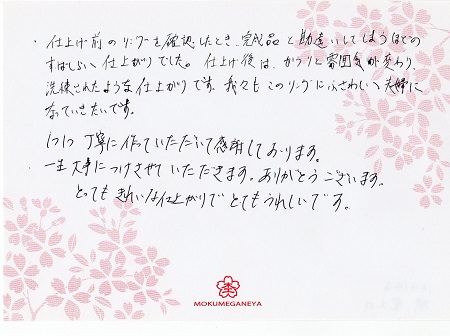 ・仕上げ前のリングを確認したとき、完成品と勘違いしてしまうほどの
すばらしい仕上がりでした。仕上げ後は、ガラリと雰囲気が変わり、
洗練されたような仕上がりです。我々もこのリングにふさわしい夫婦に
なっていきたいです。
丁寧に作っていただいて感謝しております。
一生大事につけさせていただきます。ありがとうございます。
とてもきれいな仕上がりでとてもうれしいです。
MOKUMEGANEYA